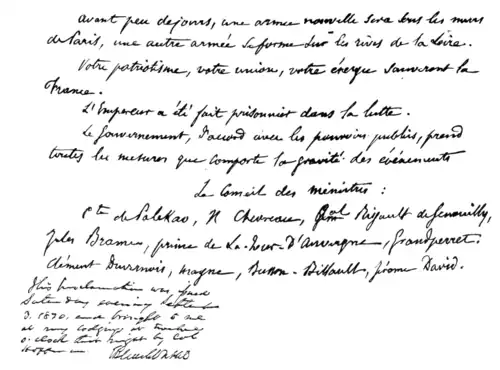 avant peu de jours, une armée nouvelle sera sous les murs
de Paris, une autre armée se forme sur les rives de la Loire.
Votre patriotisme, votre union, votre énergie sauveront la
France.
L'Empereur a été fait prisonnier dans la lutte.
Le Gouvernement, d'accord avec les pouvoirs publics, prend
toutes les mesures que comporte la gravité des événements
Le Conseil des ministres :
Cte de Palikao, H Chevreau, Rigault de Genouilly,
Jules Brame, prince de La-Tour-D'Auvergne, Grandperret
Clément Duvernois, Magne, Busson-Billault, Jérome David.
This proclamation was issued
Saturday evening September
3. 1870, and brought to me
at my lodgings at twelve
o.clock that night by Col